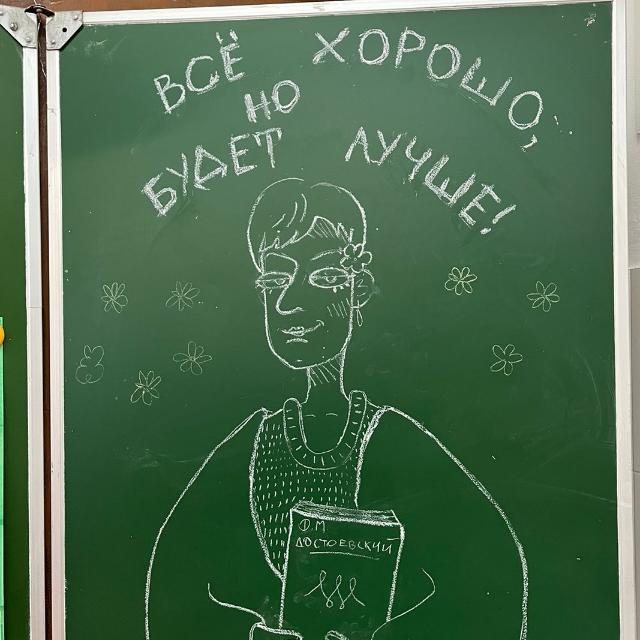 ВСЁ ХОРОШО,
НО
БУДЕТ ЛУЧШЕ!
Ф.М
ДОСТОЕВСКИЙ